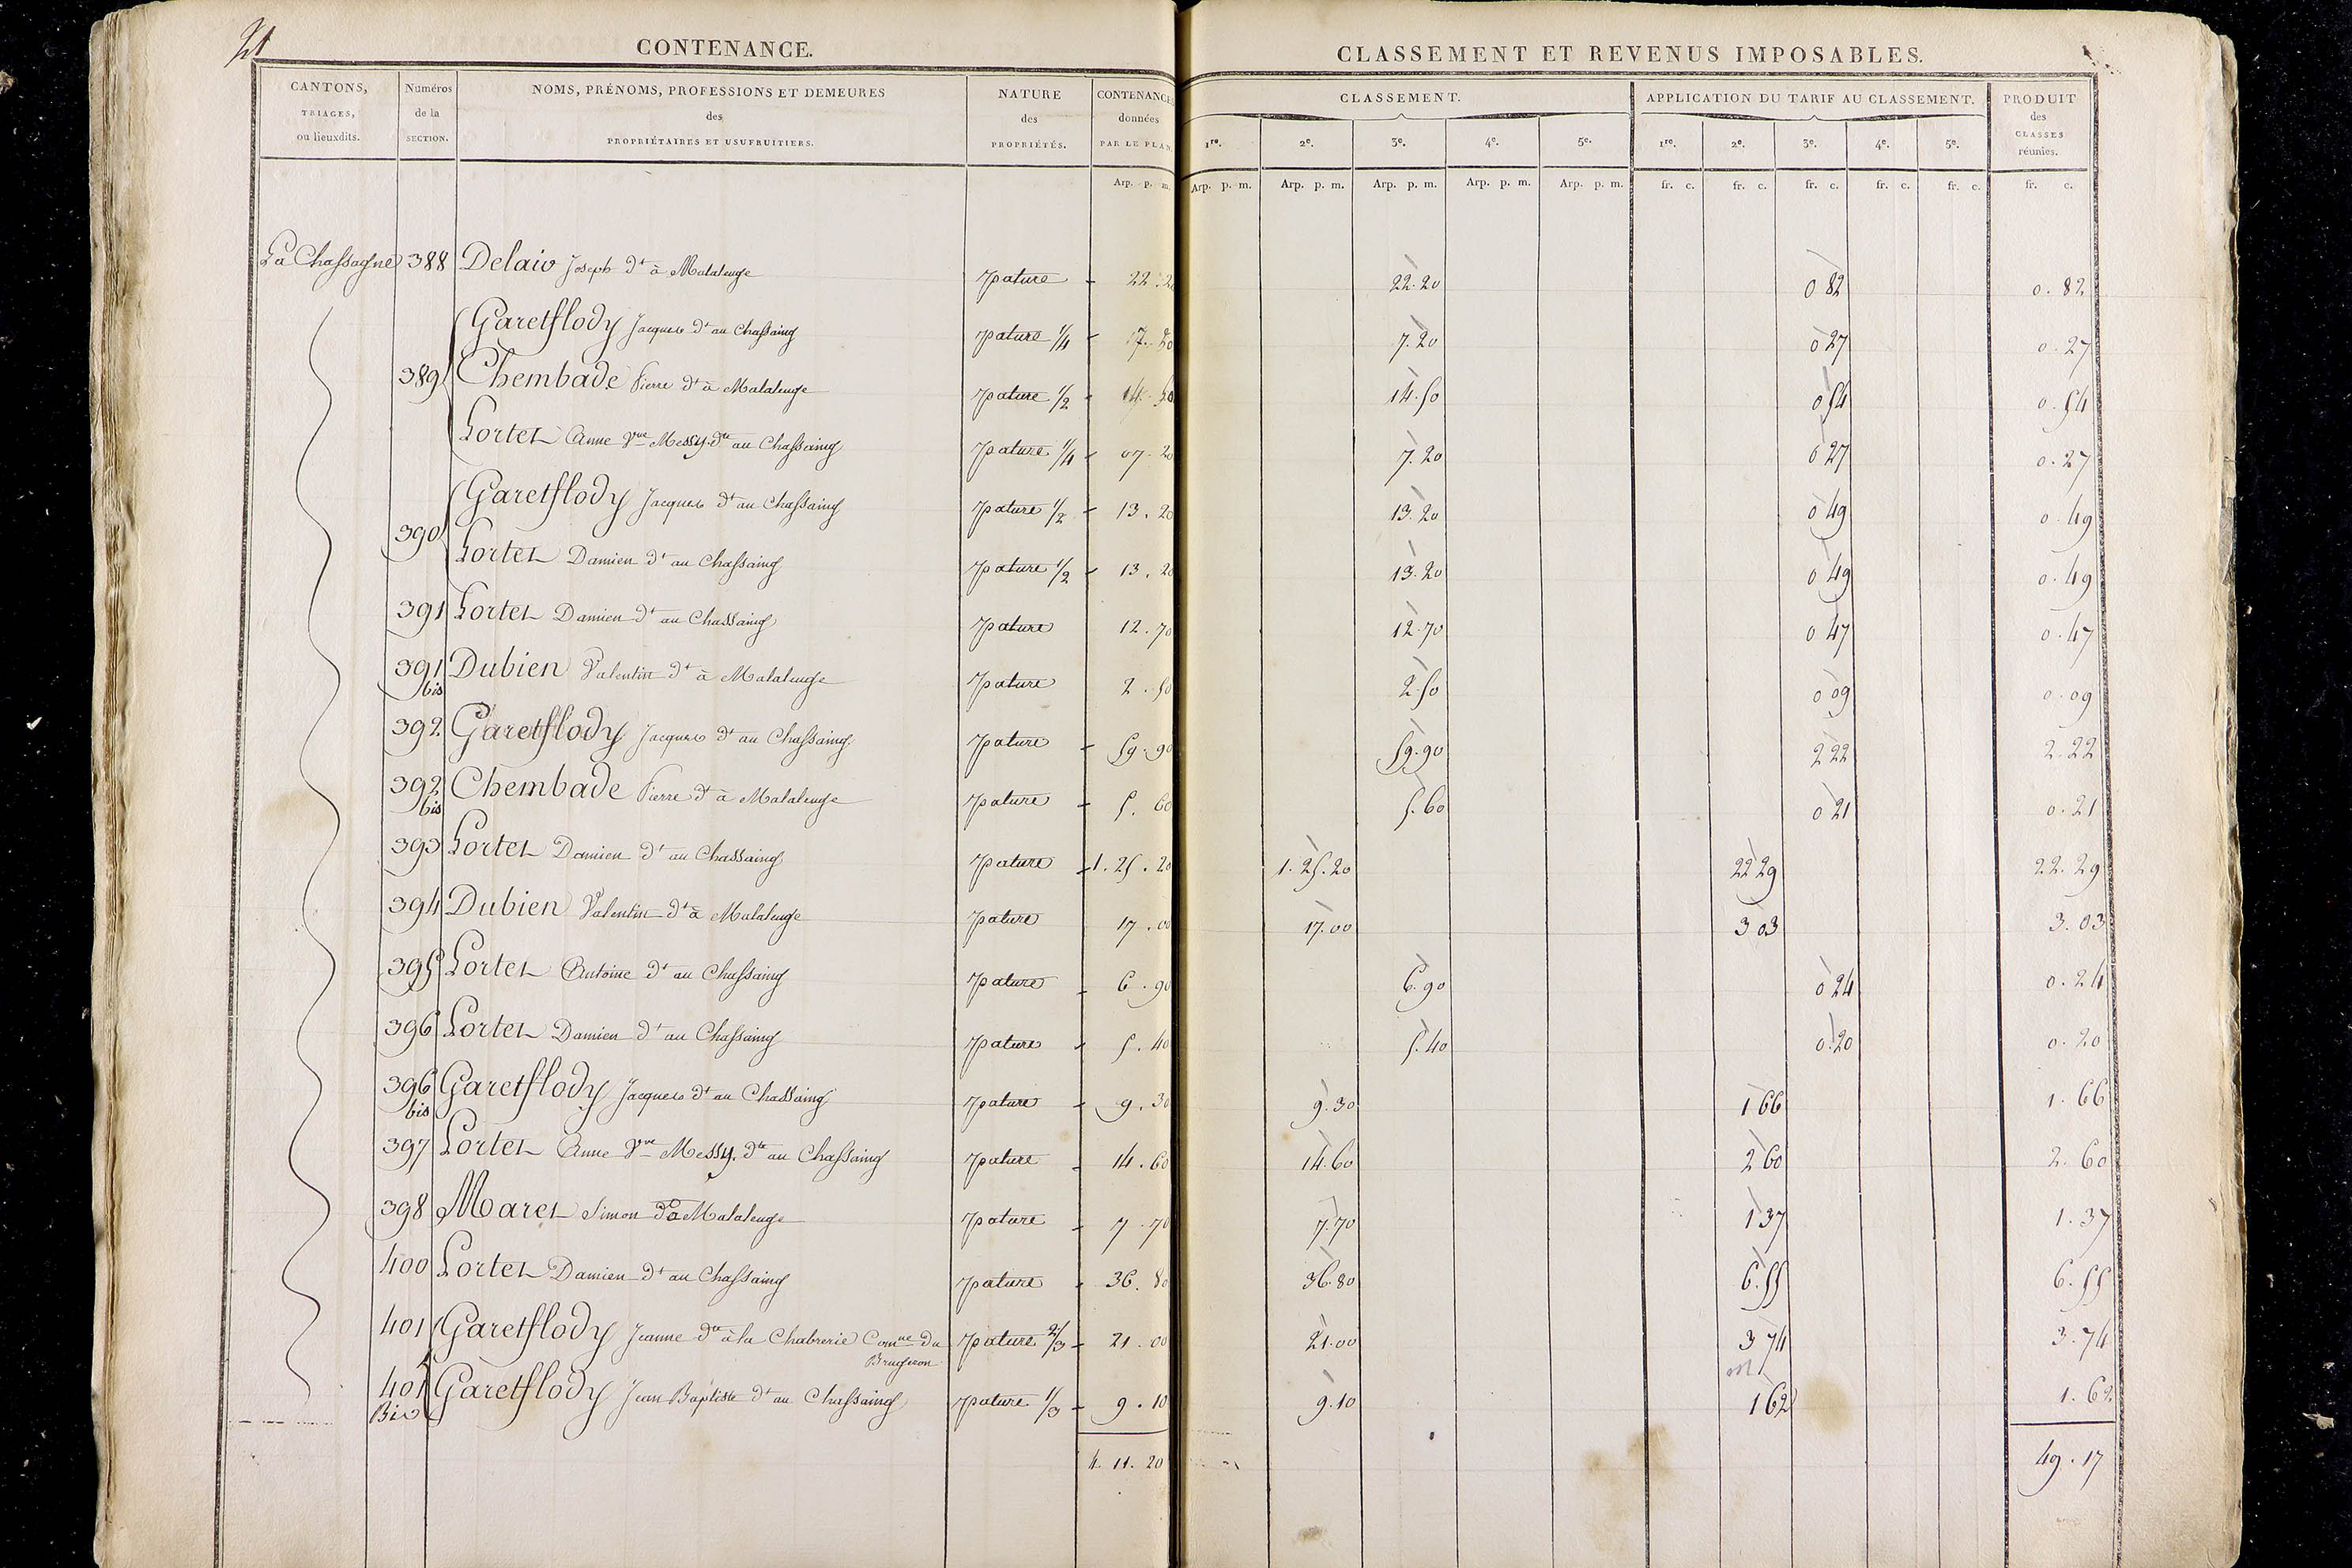 21
CONTENANCE.
CLASSEMENT ET REVENUS IMPOSABLES.
CANTONS, TRIAGES, ou lieuxdits. Numéros de la SECTION. NOMS, PRÉNOMS, PROFESSIONS ET DEMEURES des PROPRIÉTAIRES ET USUFRUITIERS. NATURE des PROPRIÉTÉS. CONTENANCES données PAR LE PLAN. CLASSEMENT. APPLICATION DU TARIF AU CLASSEMENT. PRODUIT des CLASSES réunies.
1re. 2e. 3e. 4e. 5e. 1re. 2e. 3e. 4e. 5e.
Arp. p. m. Arp. p. m. Arp. p. m. Arp. p. m. Arp. p. m. Arp. p. m. fr. c. fr. c. fr. c. fr. c. fr. c. fr. c.
La Chassagne 388 Delair Joseph dt à Malaleuge pature 22.20 22.20 0 82 0.82
Garetflody Jacques dt au Chassaing pature 1/4 7.20 7.20 0 27 0.27
389 Chembade Pierre dt à Malaleuge pature 1/2 14.50 14.50 0 54 0.54
Portet Anne Vve Messy dte au Chassaing pature 1/4 07.20 7.20 0 27 0.27
Garetflody Jacques dt au Chassaing pature 1/2 13.20 13.20 0 49 0.49
390 Portet Damien dt au Chassaing pature 1/2 13.20 13.20 0 49 0.49
391 Portet Damien dt au Chassaing pature 12.70 12.70 0 47 0.47
391 bis Dubien Valentin dt à Malaleuge pature 2.50 2.50 0 09 0.09
392 Garetflody Jacques dt au Chassaing pature 59.90 59.90 2 22 2.22
392 bis Chembade Pierre dt à Malaleuge pature 5.60 5.60 0 21 0.21
393 Portet Damien dt au Chassaing pature 1.25.20 1.25.20 22 29 22.29
394 Dubien Valentin dt à Malaleuge pature 17.00 17.00 3 03 3.03
395 Portet Antoine dt au Chassaing pature 6.90 6.90 0 24 0.24
396 Portet Damien dt au Chassaing pature 5.40 5.40 0.20 0.20
396 bis Garetflody Jacques dt au Chassaing pature 9.30 9.30 1 66 1.66
397 Portet Anne Vve Messy dte au Chassaing pature 14.60 14.60 2 60 2.60
398 Maret Simon dt à Malaleuge pature 7.70 7.70 1 37 1.37
400 Portet Damien dt au Chassaing pature 36.80 36.80 6.55 6.55
401 Garetflody Jeanne dte à la Chabrerie Comne du Brugeron pature 2/3 21.00 21.00 3 74 3.74
401 Bis Garetflody Jean Baptiste dt au Chassaing pature 1/3 9.10 9.10 1 62 1.62
4.11.20 49.17